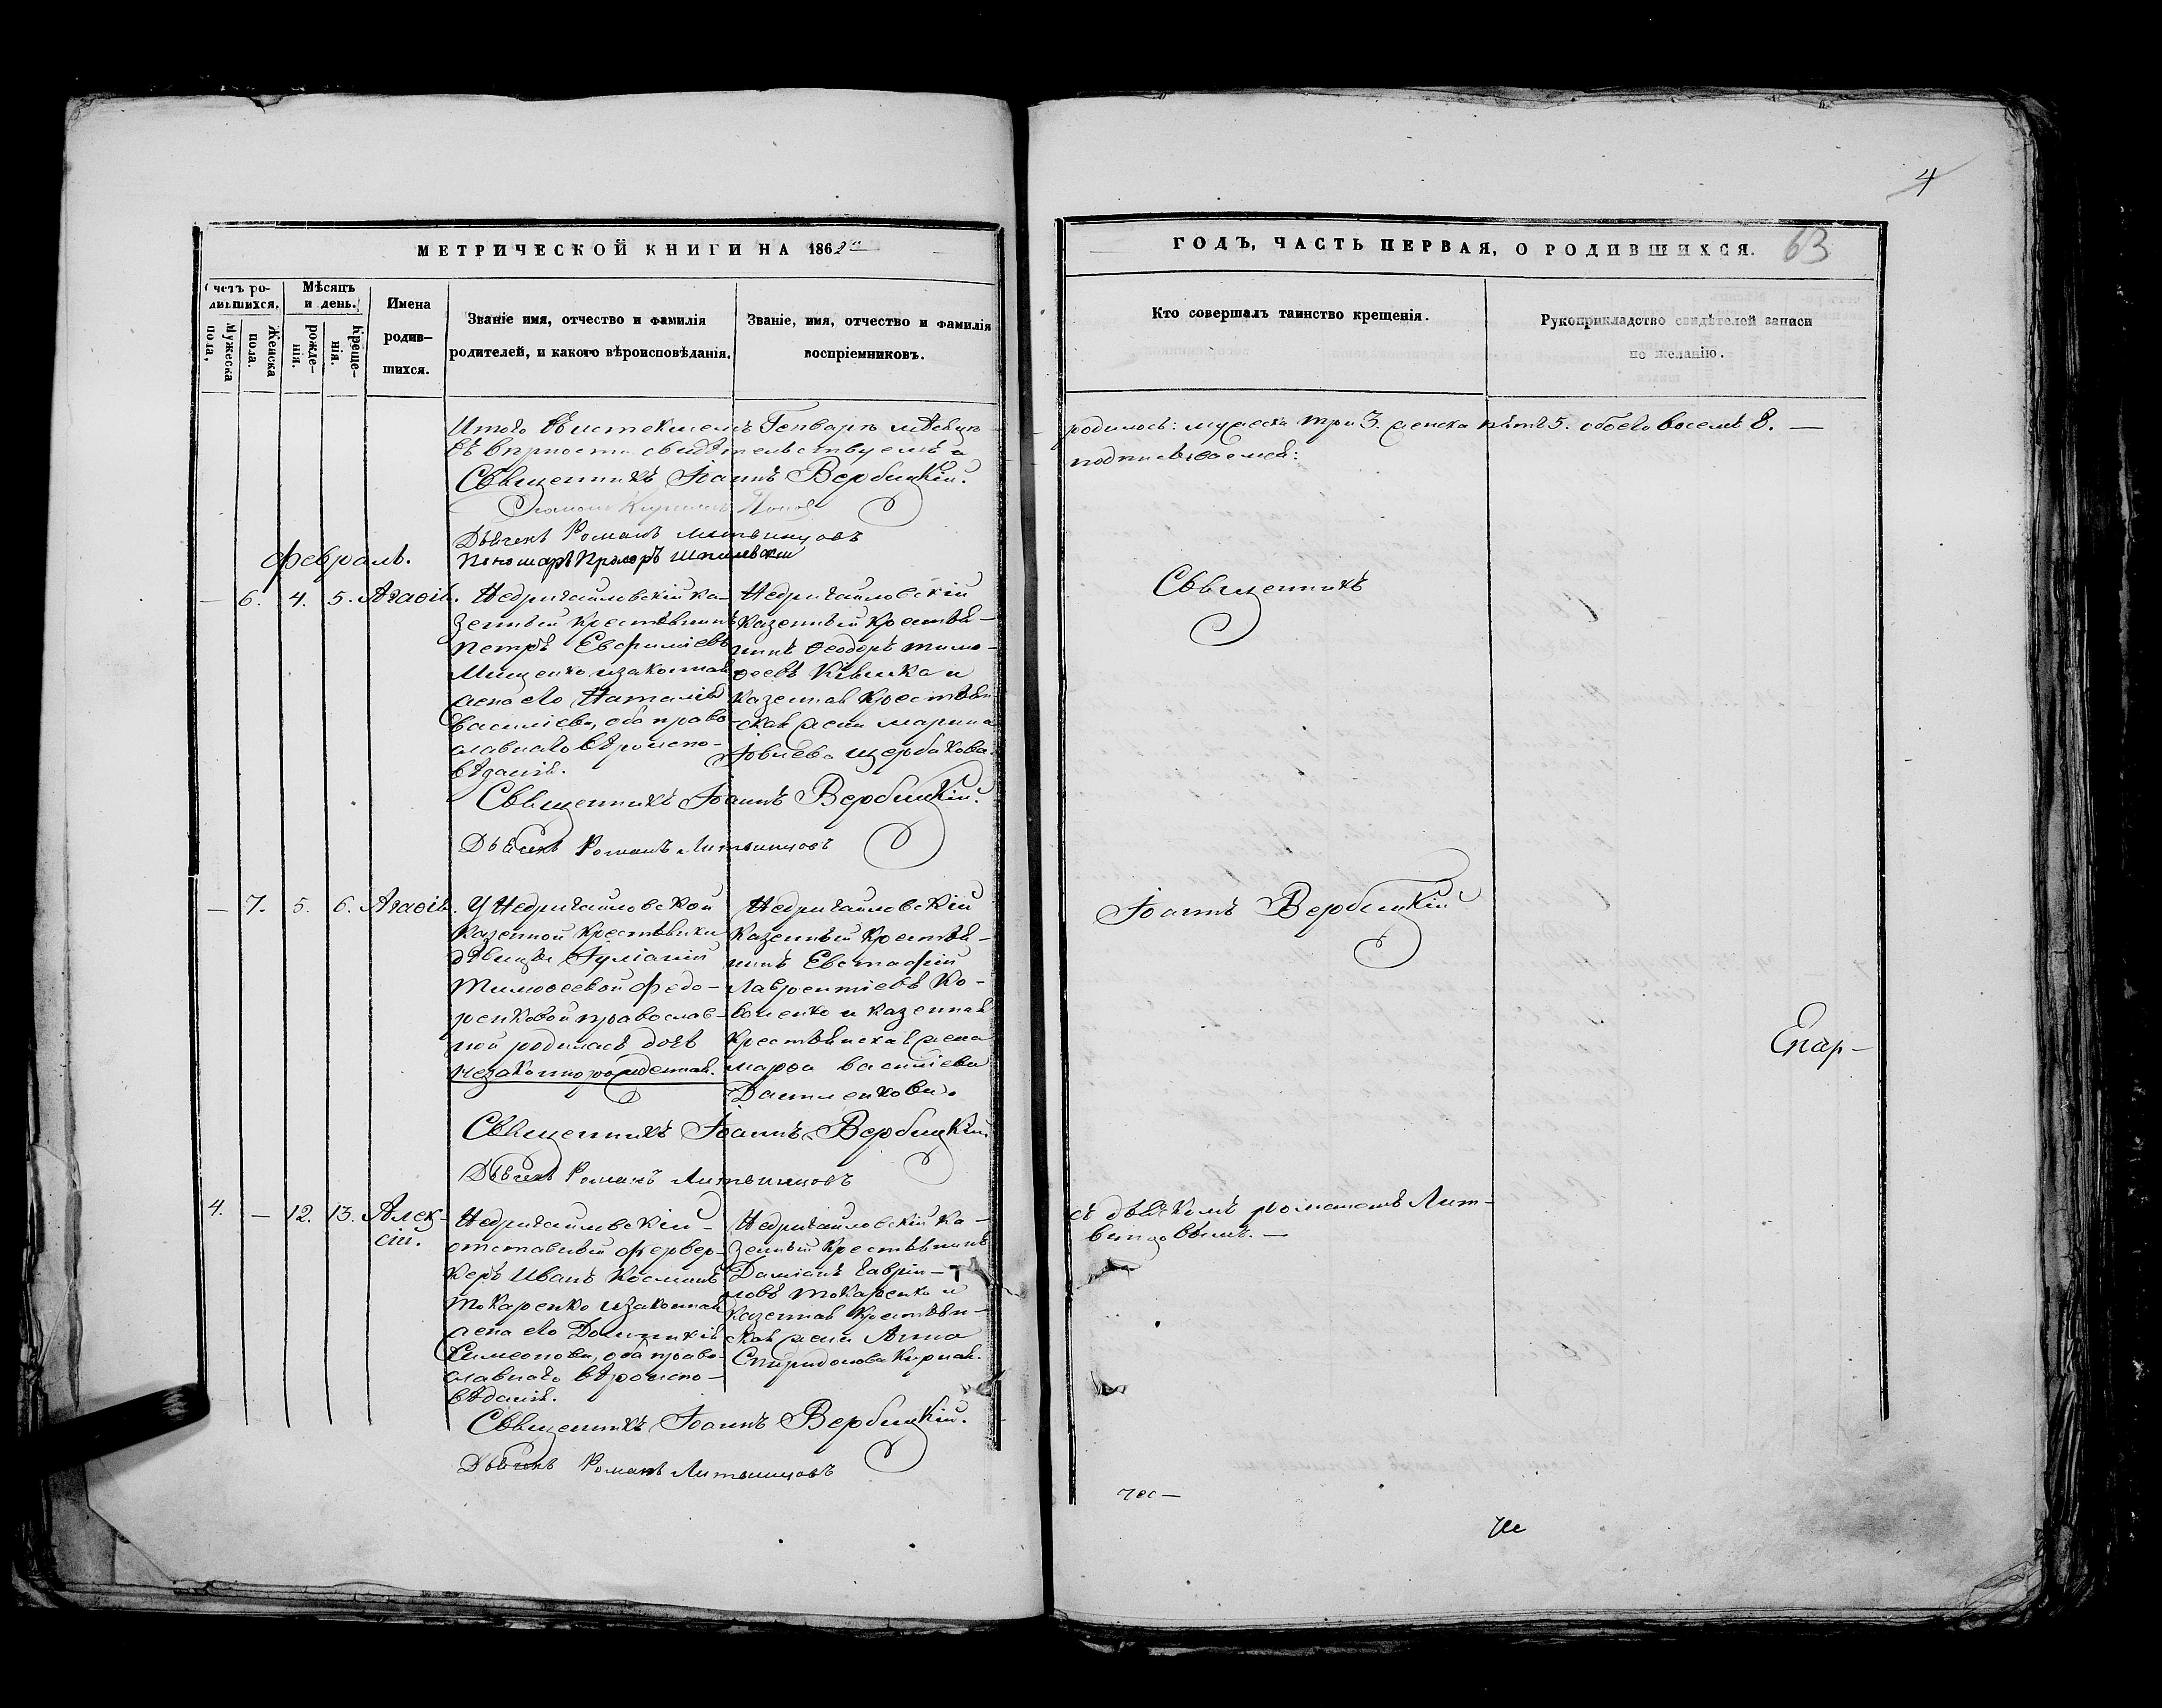 4
МЕТРИЧЕСКОЙ КНИГИ НА 1862й
ГОДЪ, ЧАСТЬ ПЕРВАЯ, О РОДИВШИХСЯ. 63
Счетъ ро-
дившихся.
Мужеска
пола,
Женска
пола.
Мѣсяцъ
и день.
рожде-
нія.
креще-
нія.
Имена
родив-
шихся.
Званіе имя, отчество и фамилія
родителей, и какого вѣроисповѣданія.
Званіе, имя, отчество и фамилія
воспріемниковъ.
Кто совершалъ таинство крещенія.
Рукоприкладство свидѣтелей записи
по желанію.
Итого въ истекшемъ Генварѣ мѣсяцѣ
родилось: мужеска три 3. женска пять 5. обоего восемь 8. —
въ вѣрности свидѣтельствуемъ и
подписываемся:
Священникъ Іоаннъ Вербицкій.
Дьячекъ Романъ Литвинцовъ
Пономарь Прохоръ Шпилевскій
Февраль.
— 6. 4. 5. Агаѳія.
Недригайловскій ка-
зенный крестьянинъ
Петръ Евфиміевъ
Мищенко и законная
жена его Наталія
Василіева, оба право-
славнаго вѣроиспо-
вѣданія.
Недригайловскій
казенный крестья-
нинъ Ѳеодоръ Тимо-
ѳеевъ Квшка и
казенная крестьян-
ская жена Марина
Іовлева Щербакова.
Священникъ
Священникъ Іоаннъ Вербицкій.
Дьячекъ Романъ Литвинцовъ
— 7. 5. 6. Агаѳія.
У Недригайловской
казенной крестьянки
дѣвицы Іуліаніи
Тимоѳеевой Федо-
ренковой православ-
ной родилась дочь
незаконнорожденная.
Недригайловскій
казенный крестья-
нинъ Евстафій
Лаврентіевъ Ко-
валенко и казенная
крестьянская жена
Марѳа Василіева
Даниленкова.
Іоаннъ Вербицкій
Епар-
Священникъ Іоаннъ Вербицкій
Дьячекъ Романъ Литвинцовъ
4. — 12. 13. Алек-
сій.
Недригайловскій
отставный фервер-
керъ Иванъ Косминъ
Токаренко и законная
жена его Домникія
Симеонова, оба право-
славнаго вѣроиспо-
вѣданія.
Недригайловскій ка-
зенный крестьянинъ
Даміанъ Гаврін-
ловъ Токаренко и
казенная крестьян-
ская жена Анна
Спиридонова Кирная.
съ дьячкомъ Романомъ Лит-
винцовымъ. —
Священникъ Іоаннъ Вербицкій.
Дьячекъ Романъ Литвинцовъ